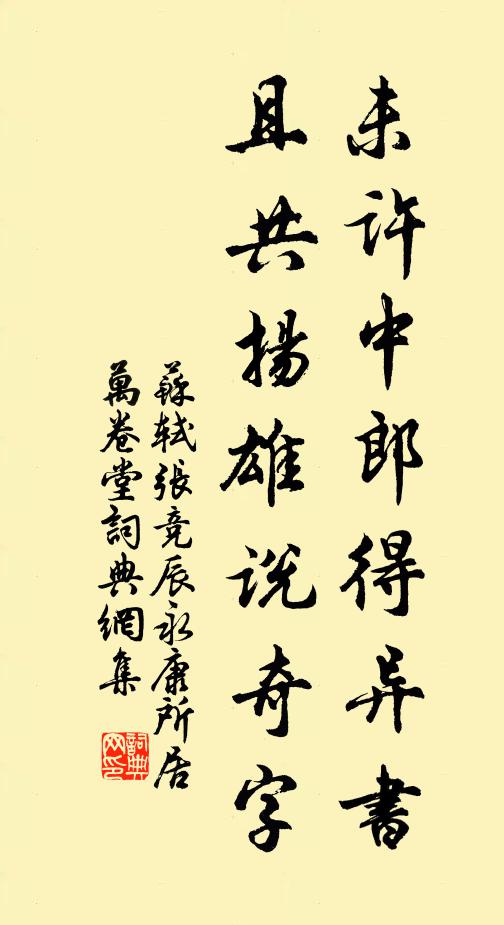 未许中郎得异書
且共揚雄说奇字
蘇軾張竞辰永康所居
萬卷堂詞典網集
詞典網印